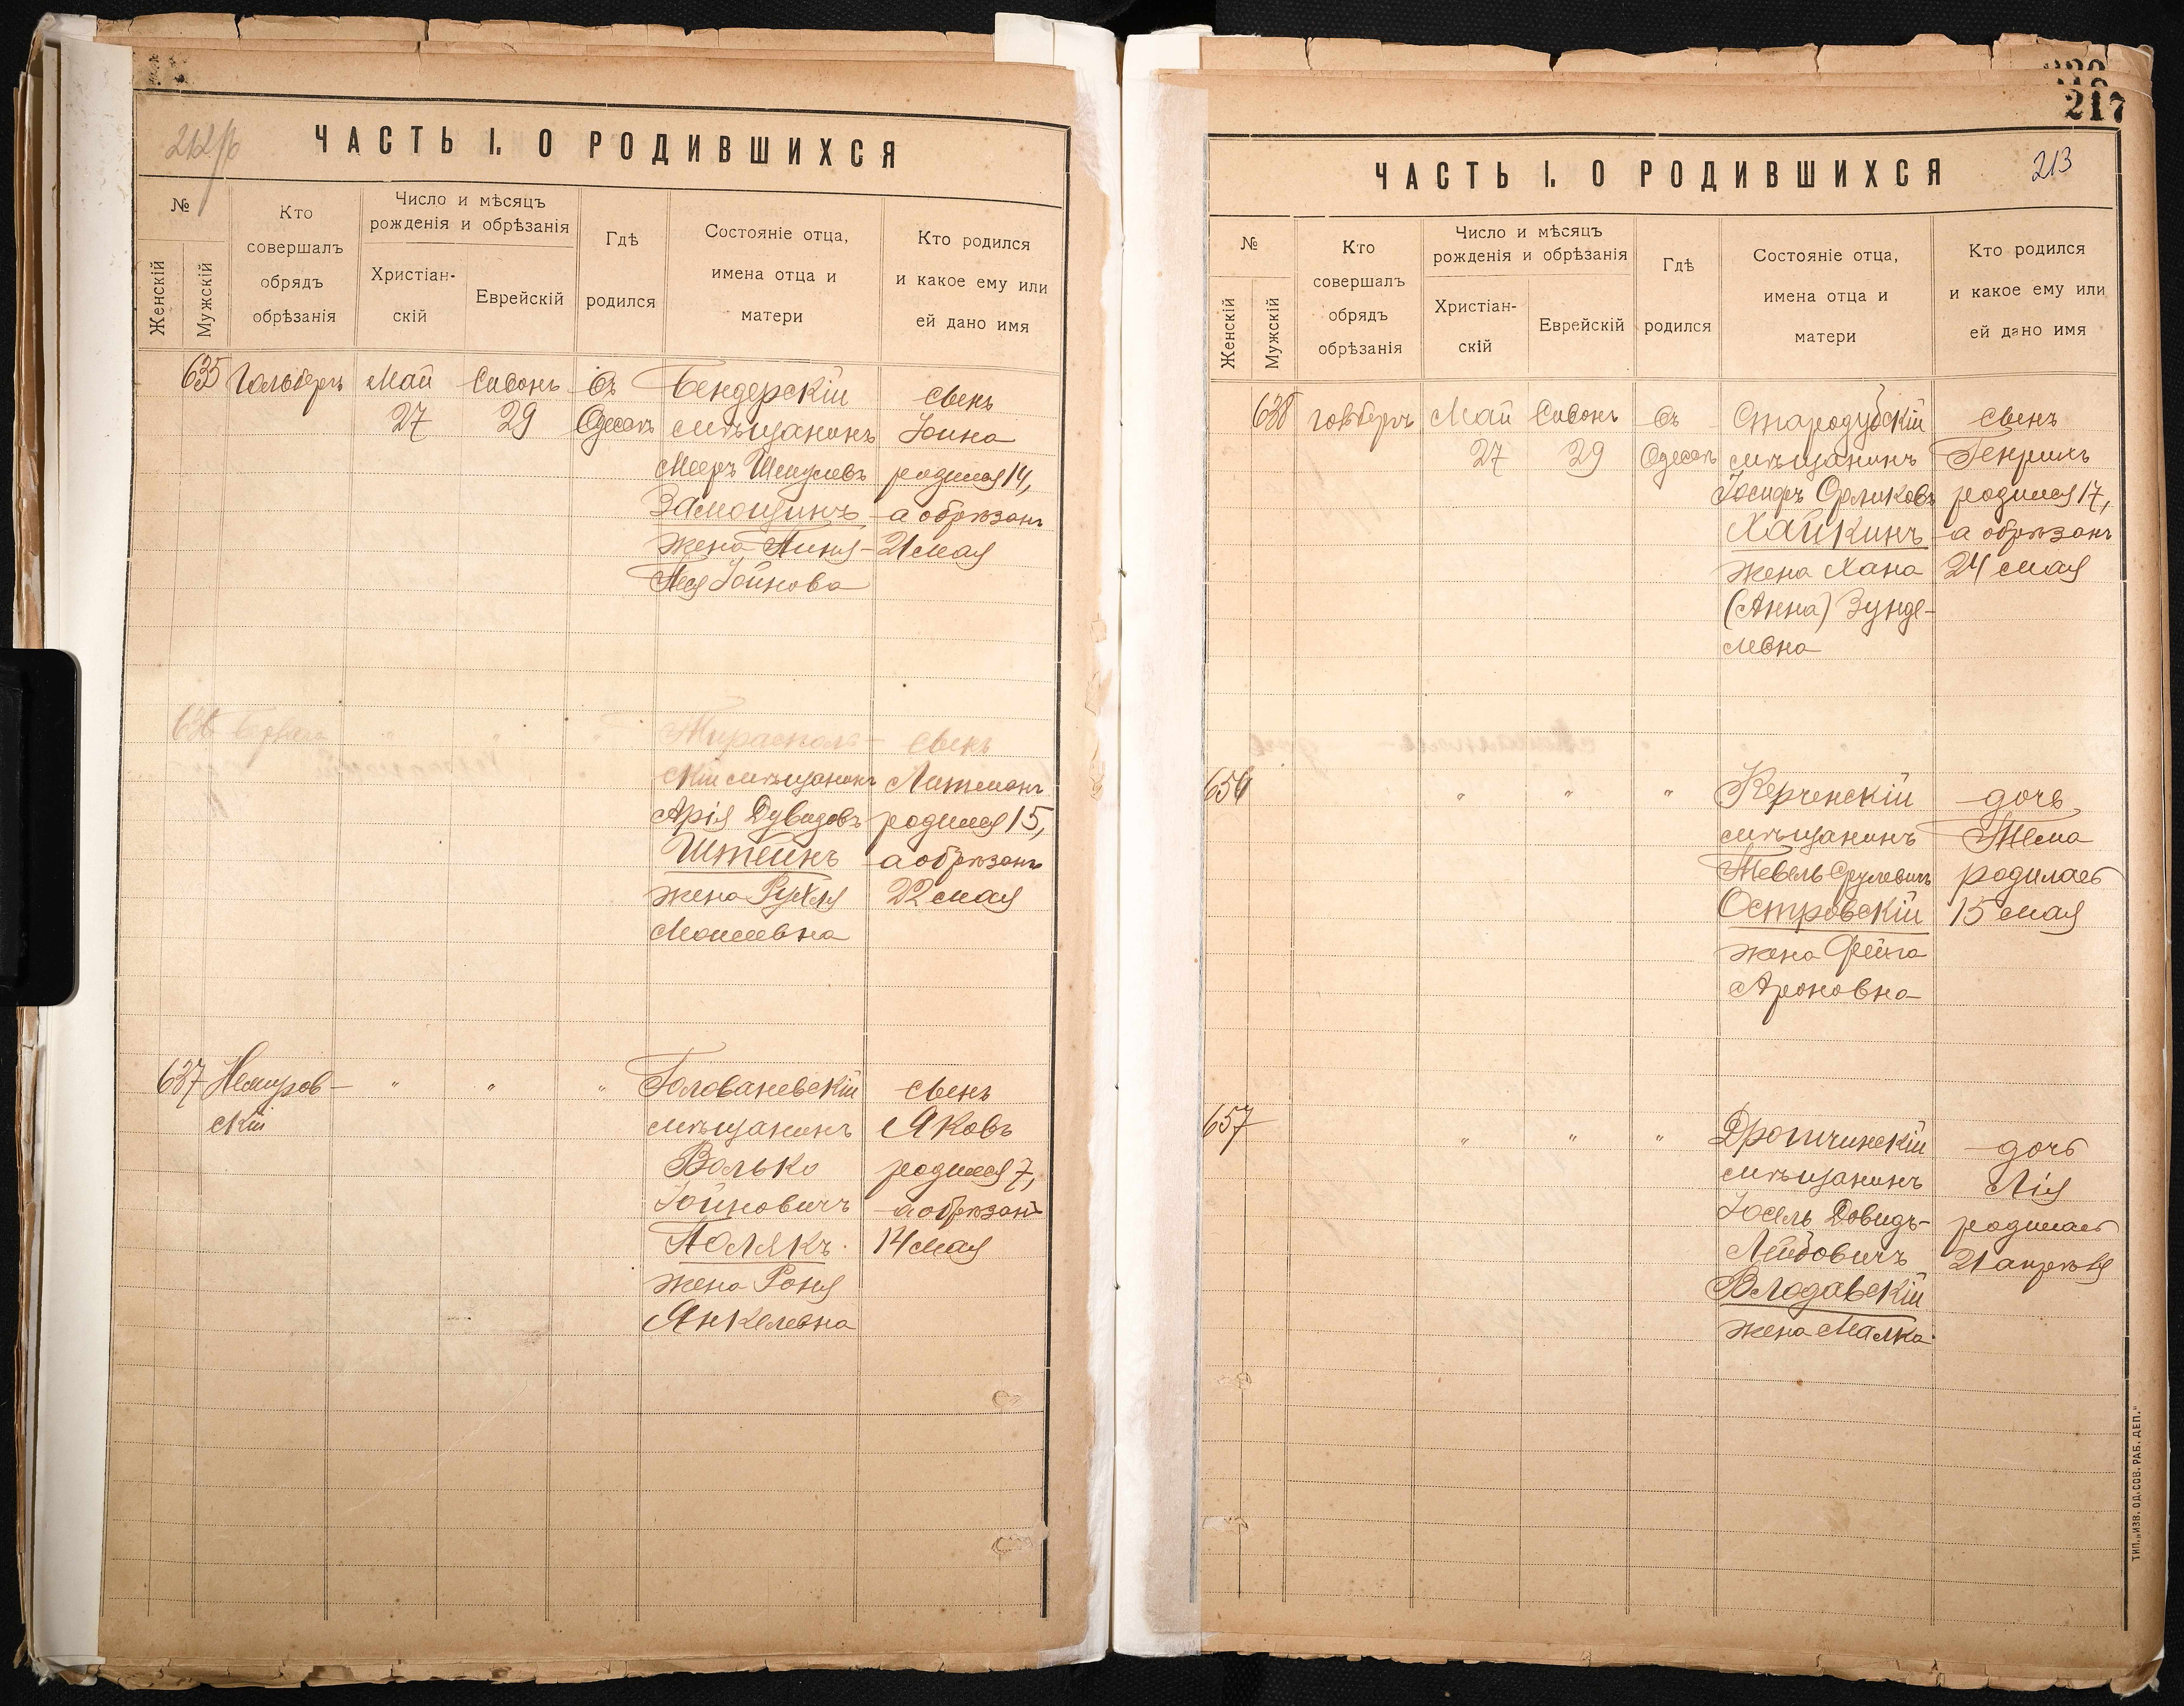 ЧАСТЬ I. О РОДИВШИХСЯ
№
Женскій
Мужскій
Кто
совершалъ
обрядъ
обрѣзанія
Число и мѣсяцъ
рожденія и обрѣзанія
Христіан-
скій
Еврейскій
Гдѣ
родился
Состояніе отца,
имена отца и
матери
Кто родился
и какое ему или
ей дано имя
635
Гольберъ
Май
27
Сивонъ
29
въ
Одессѣ
Бендерскій
мѣщанинъ
Мееръ Шмулевъ
Замощинъ
жена
Іойнова
сынъ
Іоина
родился 14,
а обрѣзанъ
21 мая
636
"
"
"
Тирасполь-
скій мѣщанинъ
Арія Дувидовъ
Штейнъ
жена Рухля
Моисеевна
сынъ
Литманъ
родился 15,
а обрѣзанъ
22 мая
637
Немиров-
скій
"
"
"
Голованевскій
мѣщанинъ
Волько
Іойновичъ
Полякъ
жена Роня
Янкелевна
сынъ
Яковъ
родился 7,
а обрѣзанъ
14 мая
217
213
ЧАСТЬ I. О РОДИВШИХСЯ
№
Женскій
Мужскій
Кто
совершалъ
обрядъ
обрѣзанія
Число и мѣсяцъ
рожденія и обрѣзанія
Христіан-
скій
Еврейскій
Гдѣ
родился
Состояніе отца,
имена отца и
матери
Кто родился
и какое ему или
ей дано имя
638
Май
27
Сивонъ
29
въ
Одессѣ
Стародубскій
мѣщанинъ
Іосифъ Орликовъ
Хайкинъ
жена Хана
(Анна) Зунде-
левна
сынъ
Генрихъ
родился 17,
а обрѣзанъ
24 мая
656
"
"
"
Керченскій
мѣщанинъ
Тевель Срулевичъ
Островскій
жена Фейга
Ароновна
дочь
Тема
родилась
15 мая
657
"
"
"
Дрогичинскій
мѣщанинъ
Іосель Довидъ-
Лейбовичъ
Влодавскій
жена Малка
дочь
Лія
родилась
21 апрѣля
ТИП. „ИЗВ. ОД. СОВ. РАБ. ДЕП."